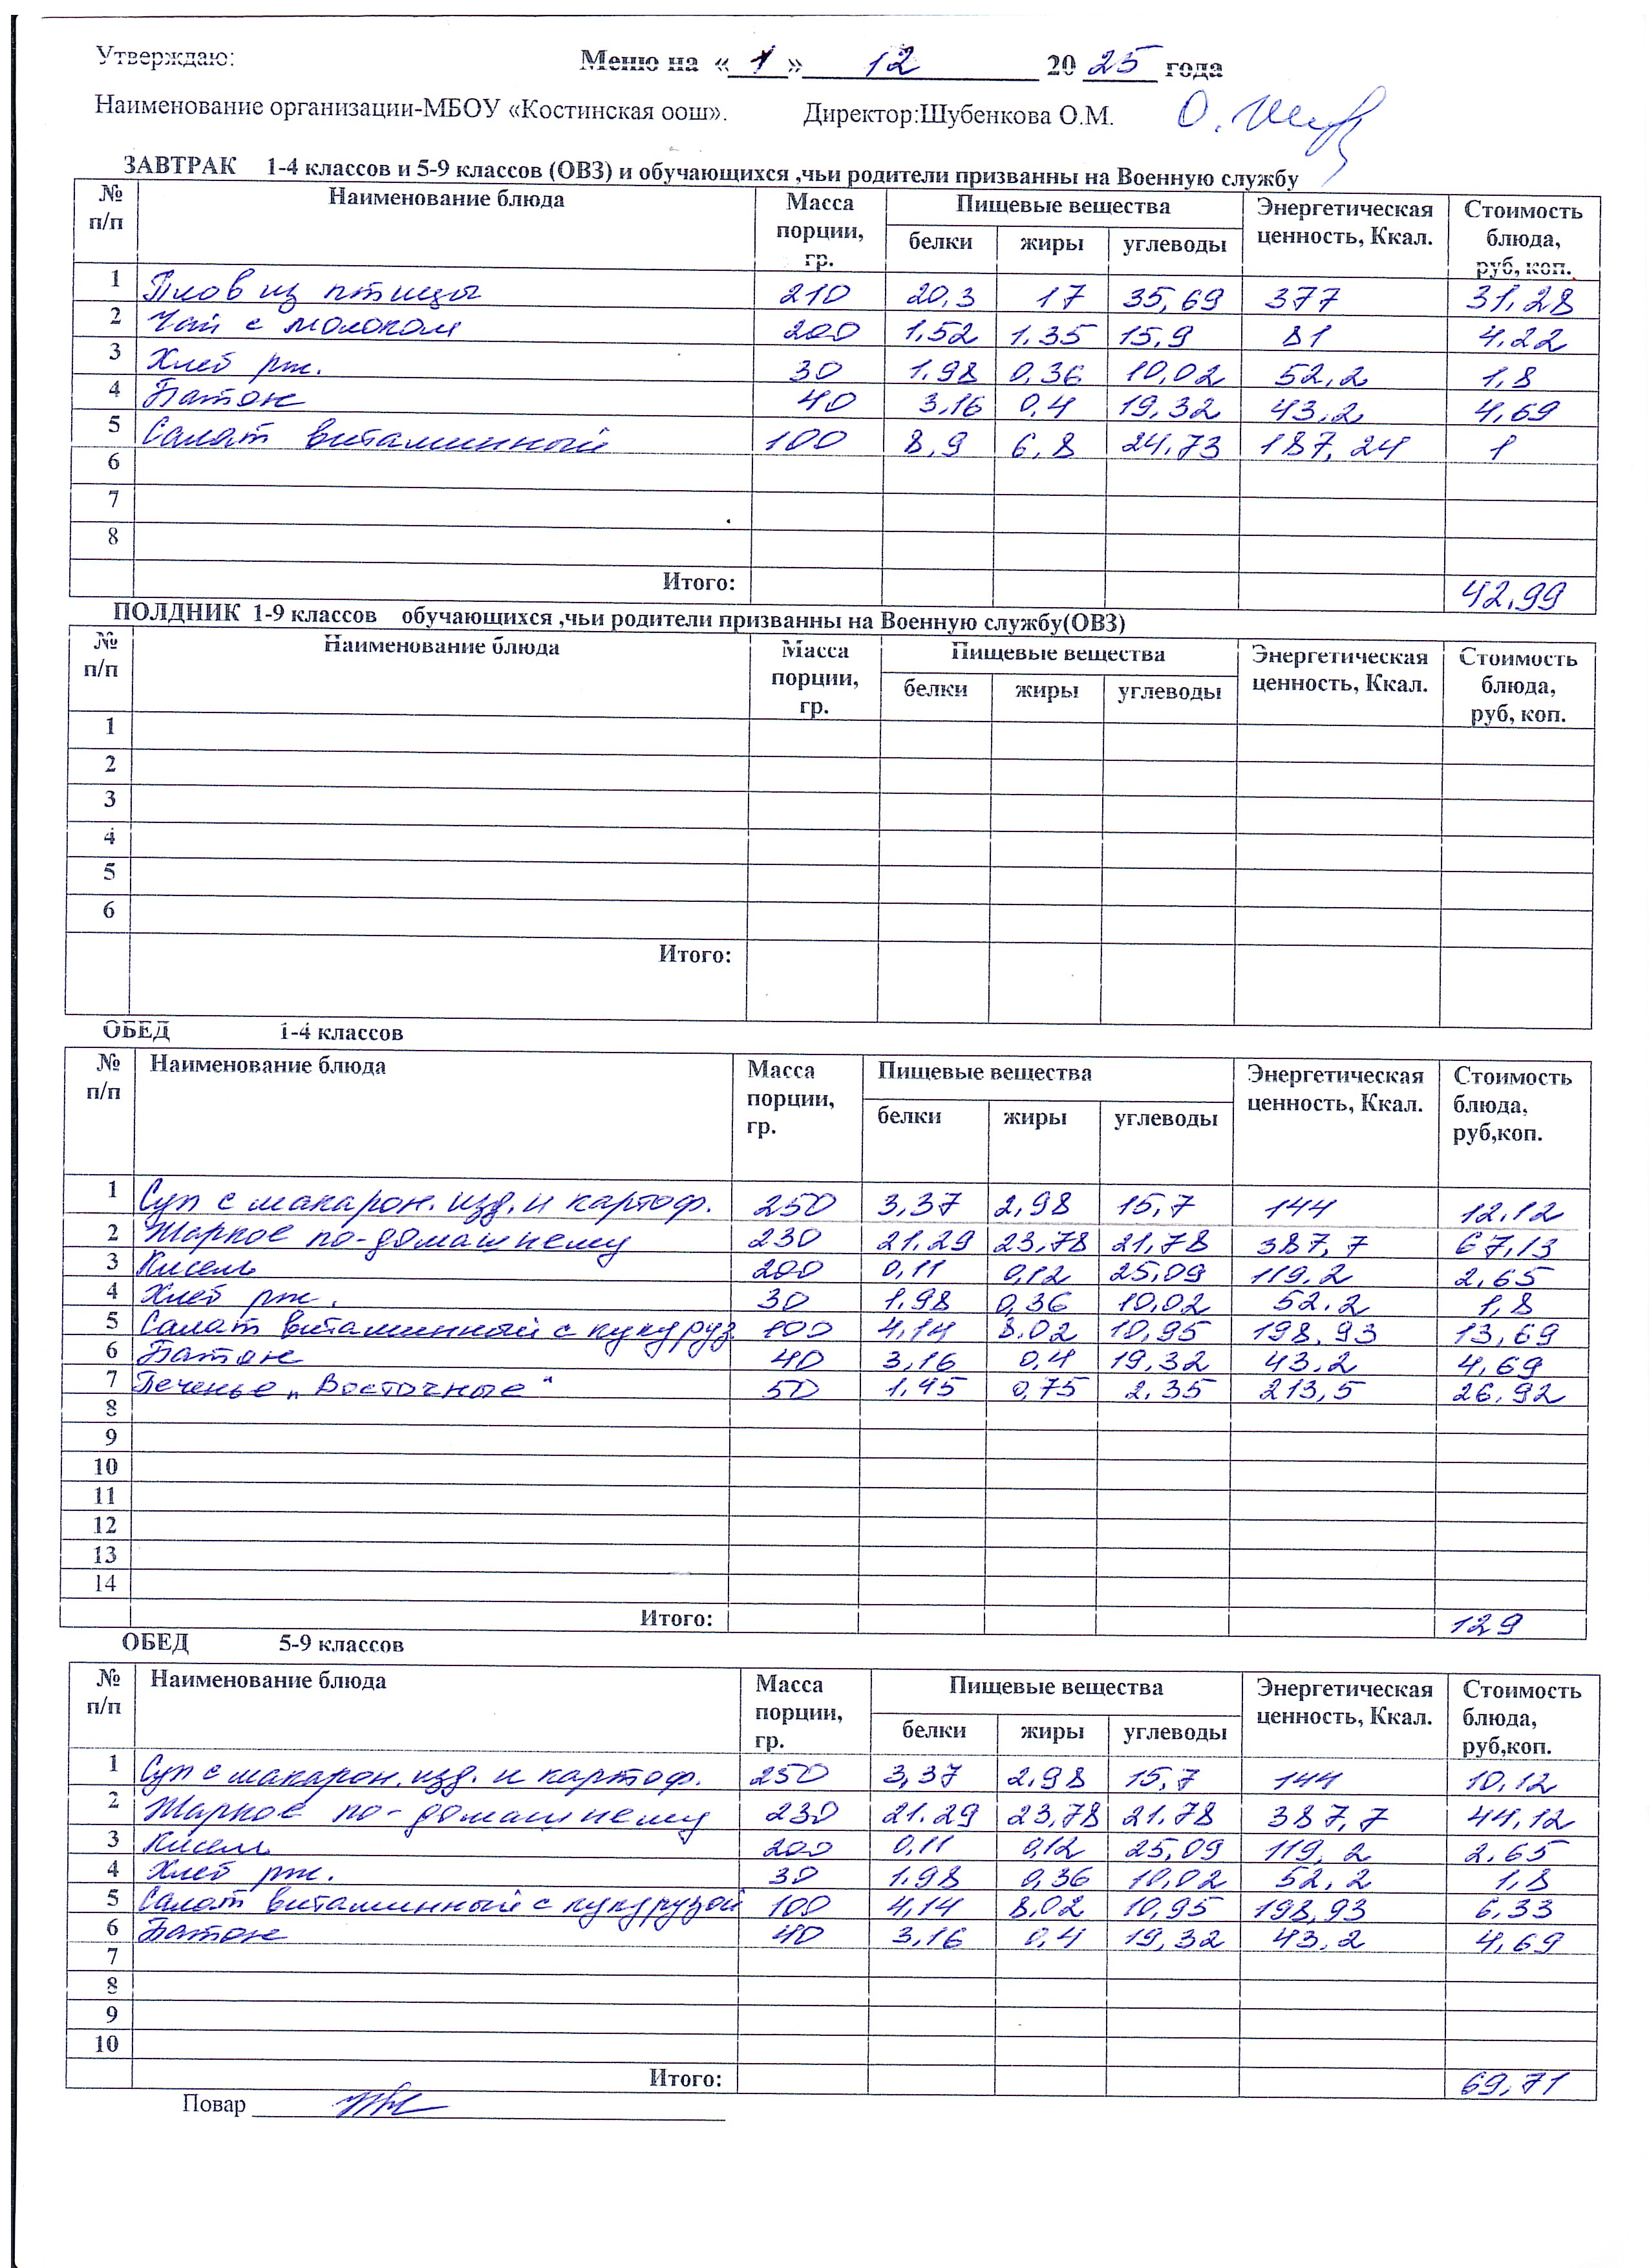 Утверждаю: Меню на «1» 12 2025 года
Наименование организации-МБОУ «Костинская оош». Директор:Шубенкова О.М.
ЗАВТРАК 1-4 классов и 5-9 классов (ОВЗ) и обучающихся ,чьи родители призванны на Военную службу
№ п/п Наименование блюда Масса порции, гр. Пищевые вещества Энергетическая ценность, Ккал. Стоимость блюда, руб, коп.
белки жиры углеводы
1 Плов из птицы 210 20,3 17 35,69 377 31,28
2 Чай с молоком 200 1,52 1,35 15,9 81 4,22
3 Хлеб рж. 30 1,98 0,36 10,02 52,2 1,8
4 Батон 40 3,16 0,4 19,32 43,2 4,69
5 Салат витаминный 100 8,9 6,8 24,73 187,24 1
6
7
8
Итого: 42,99
ПОЛДНИК 1-9 классов обучающихся ,чьи родители призванны на Военную службу(ОВЗ)
№ п/п Наименование блюда Масса порции, гр. Пищевые вещества Энергетическая ценность, Ккал. Стоимость блюда, руб, коп.
белки жиры углеводы
1
2
3
4
5
6
Итого:
ОБЕД 1-4 классов
№ п/п Наименование блюда Масса порции, гр. Пищевые вещества Энергетическая ценность, Ккал. Стоимость блюда, руб,коп.
белки жиры углеводы
1 Суп с макарон. изд. и картоф. 250 3,37 2,98 15,7 144 12,12
2 Жаркое по-домашнему 230 21,29 23,78 21,78 387,7 67,13
3 Кисель 200 0,11 0,12 25,09 119,2 2,65
4 Хлеб рж. 30 1,98 0,36 10,02 52,2 1,8
5 Салат витаминный с кукуруз. 100 4,14 8,02 10,95 198,93 13,69
6 Батон 40 3,16 0,4 19,32 43,2 4,69
7 Печенье „Восточные“ 50 1,45 0,75 2,35 213,5 26,92
8
9
10
11
12
13
14
Итого: 129
ОБЕД 5-9 классов
№ п/п Наименование блюда Масса порции, гр. Пищевые вещества Энергетическая ценность, Ккал. Стоимость блюда, руб,коп.
белки жиры углеводы
1 Суп с макарон. изд. и картоф. 250 3,37 2,98 15,7 144 10,12
2 Жаркое по-домашнему 230 21.29 23,78 21.78 387,7 44,12
3 Кисель 200 0,11 0,12 25,09 119,2 2,65
4 Хлеб рж. 30 1,98 0,36 10,02 52,2 1,8
5 Салат витаминный с кукурузой 100 4,14 8,02 10,95 198,93 6,33
6 Батон 40 3,16 0,4 19,32 43,2 4,69
7
8
9
10
Итого: 69,71
Повар